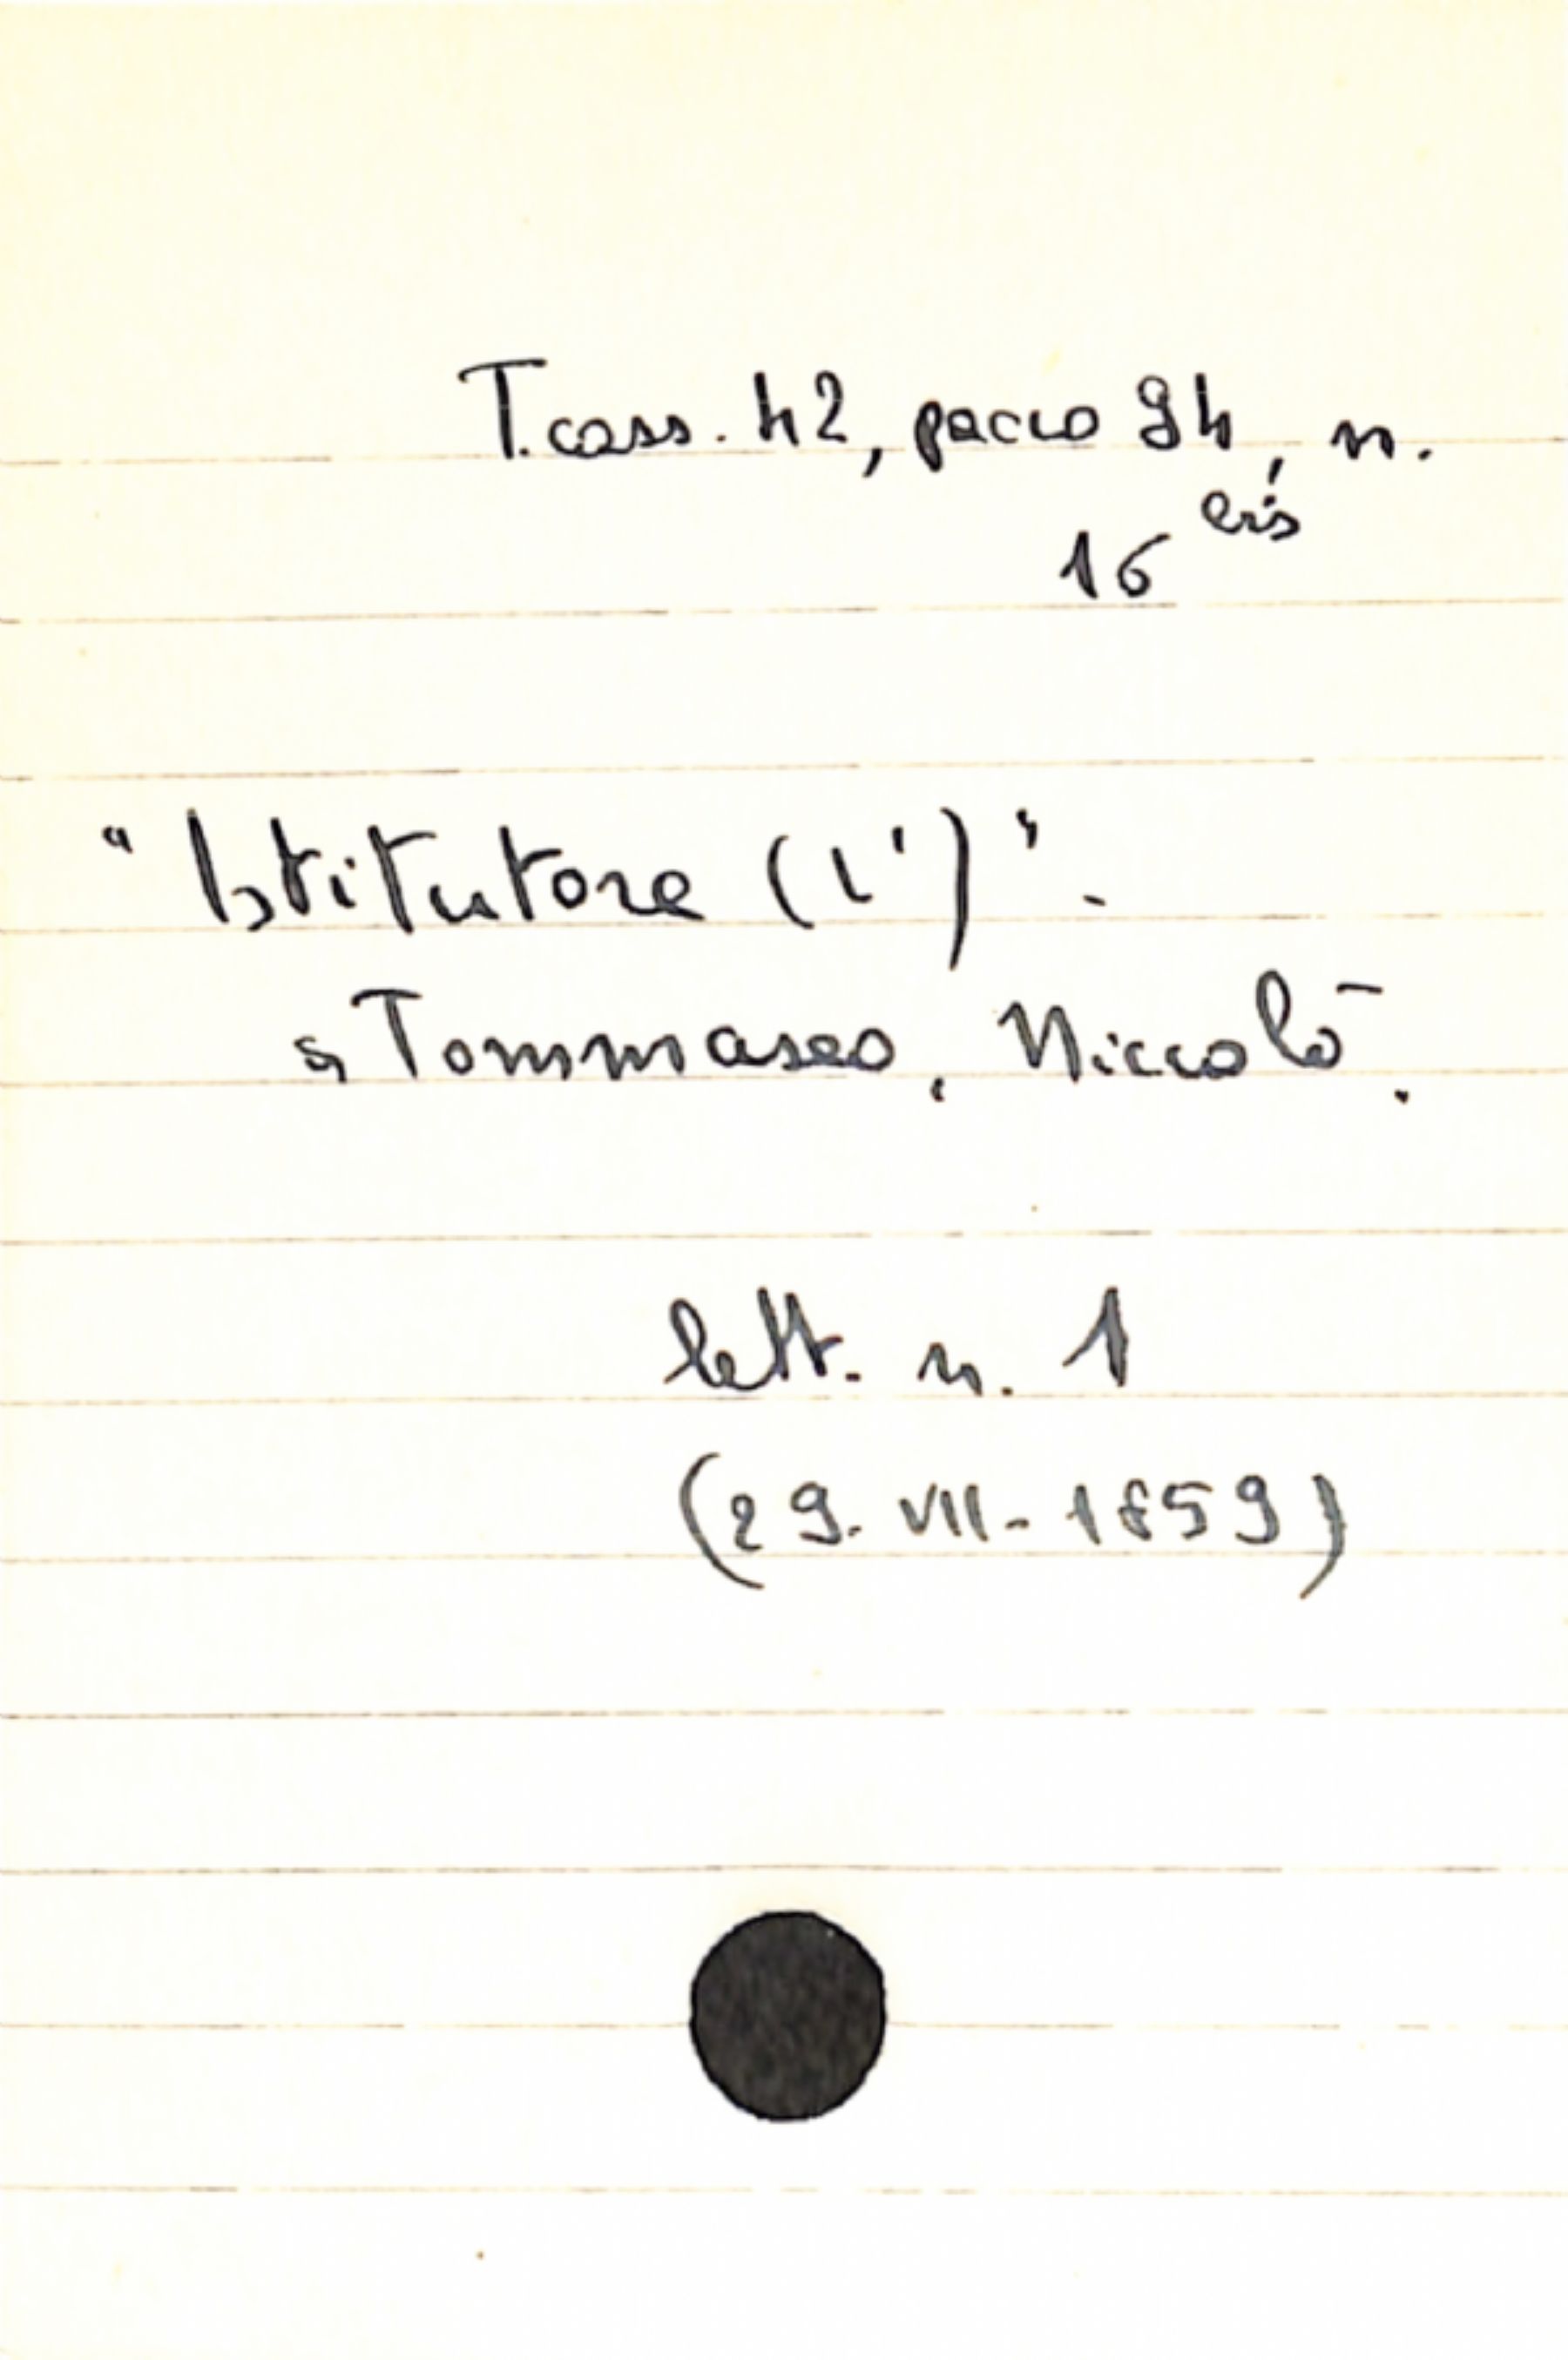 T. cass. 42, pacco 94, n.
16 bis
"Istitutore (L')".
a Tommaseo, Niccolò.
lett. n. 1
(29. VII - 1859)